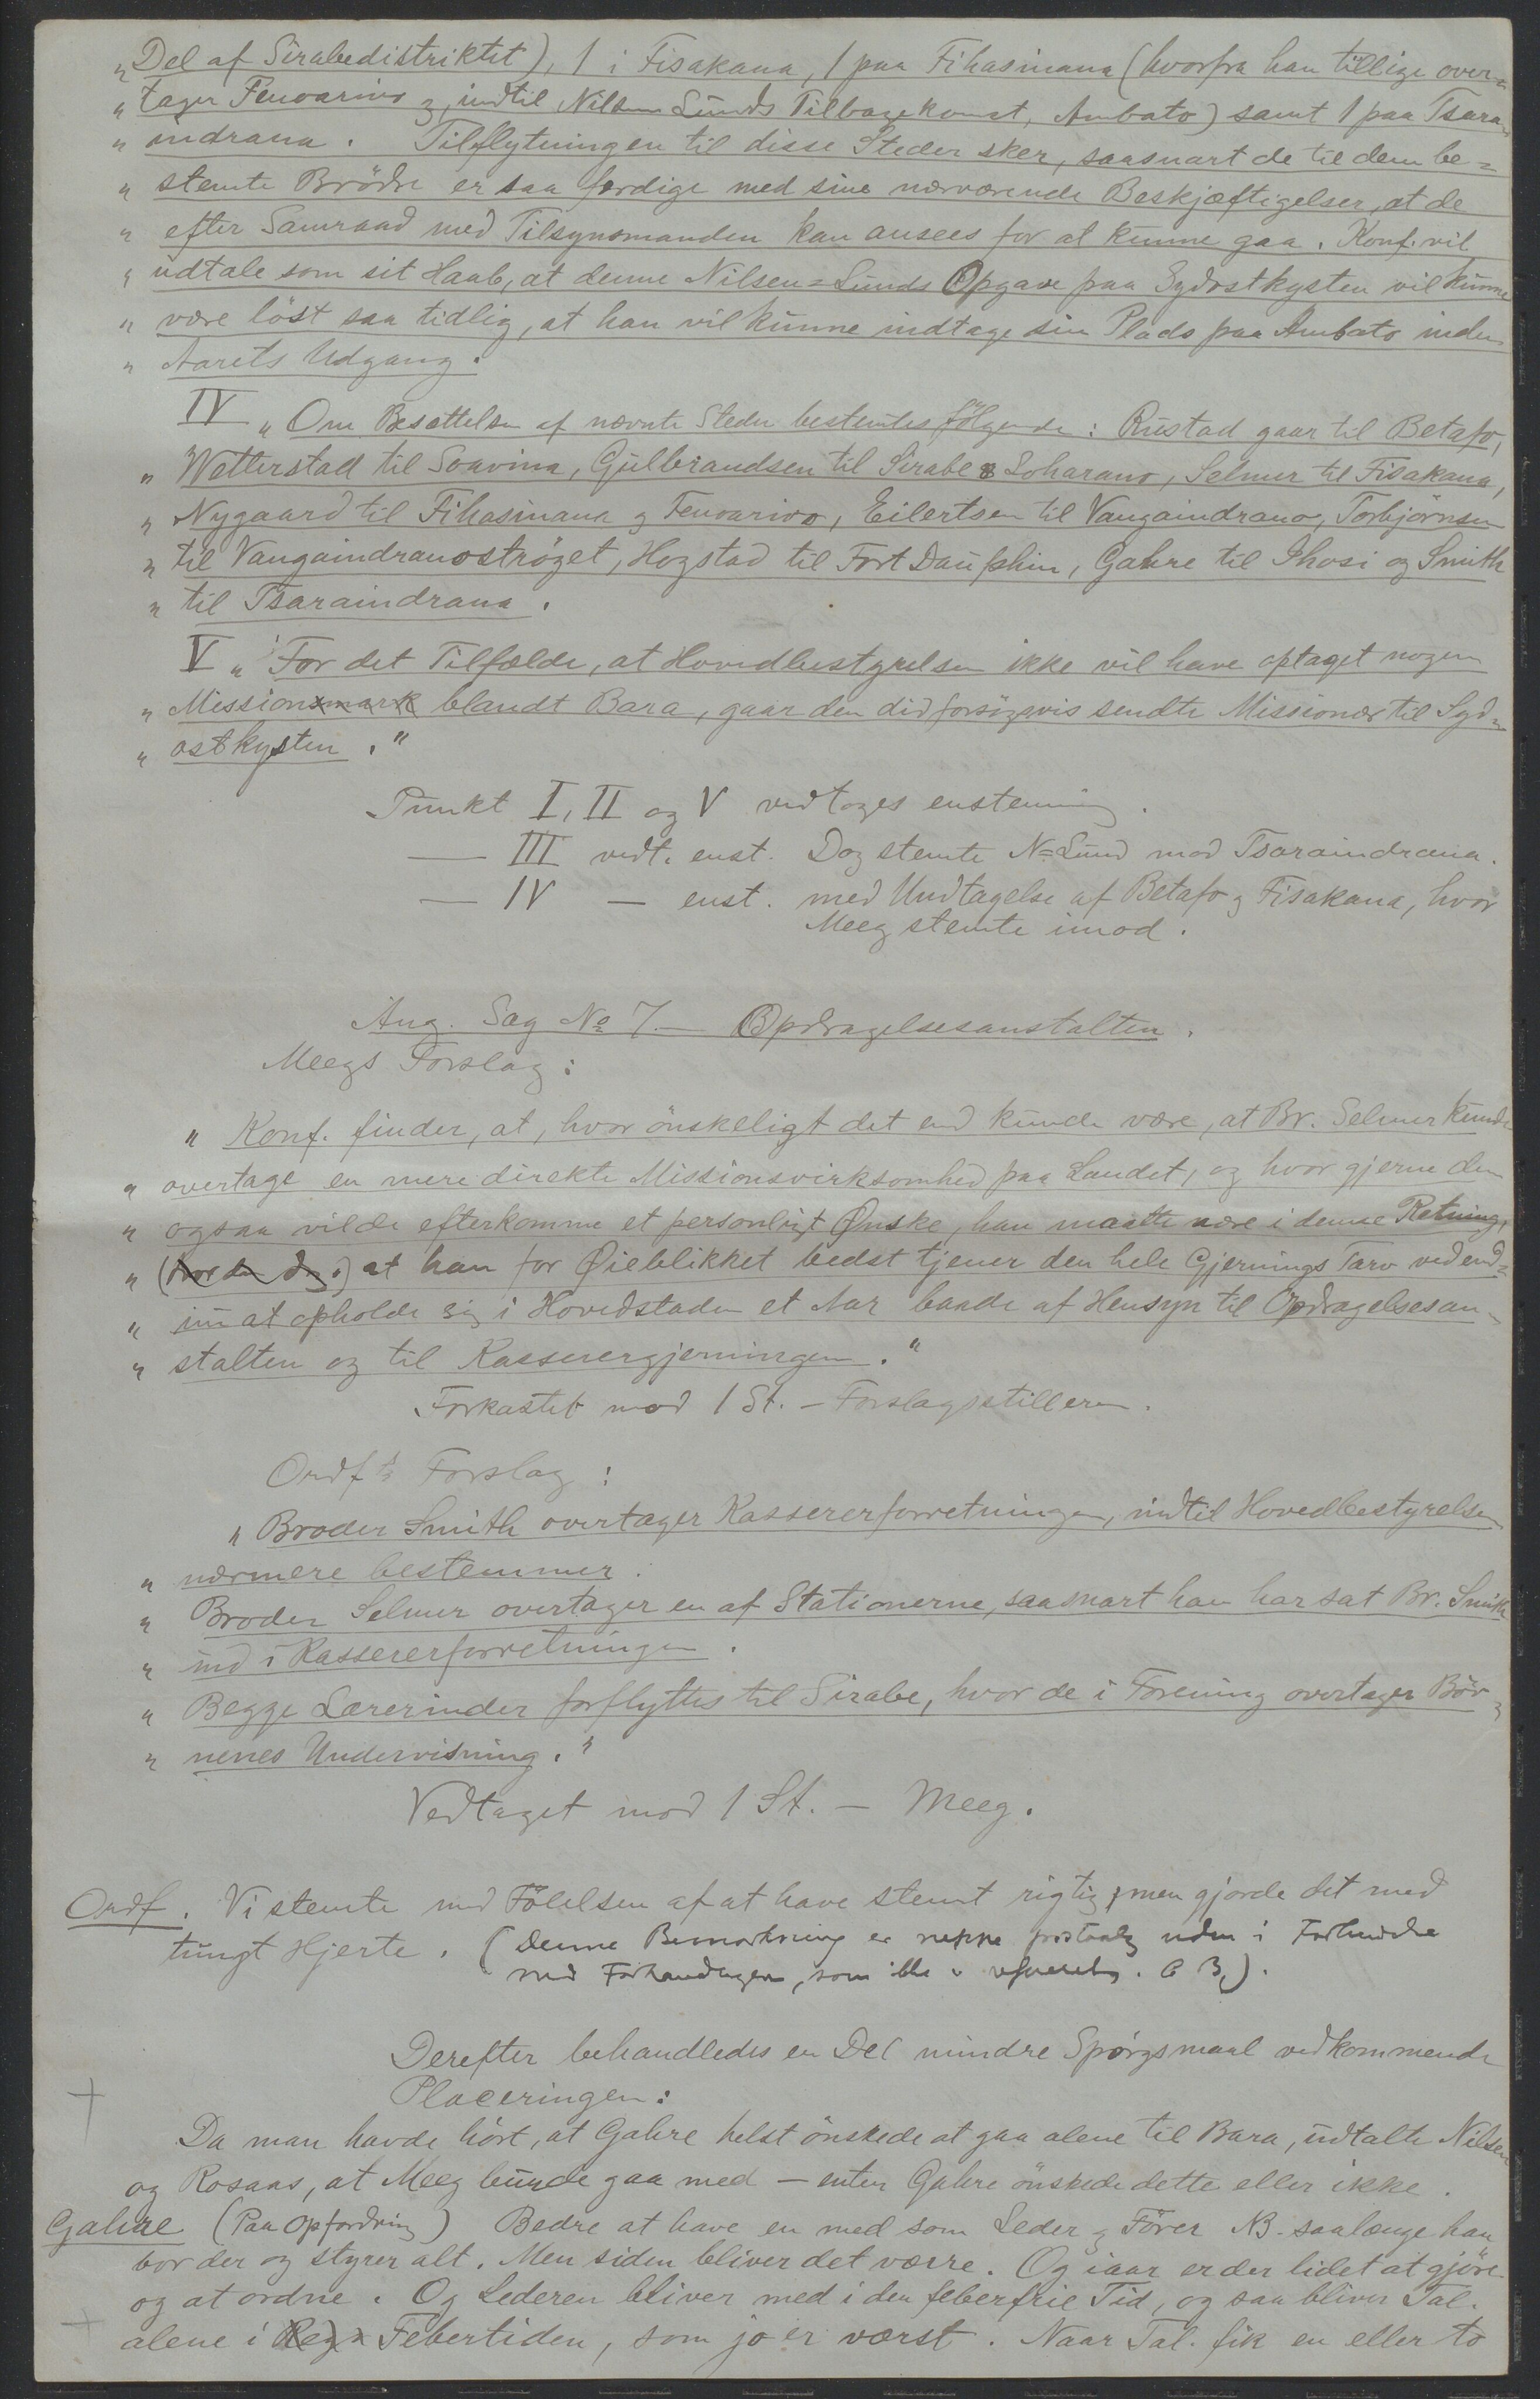 „ Del af Sirabedistriktet), 1 i Fisakana, 1 paa Fihasinana (hvorfra han tillige over-
„ tager Fenoarivo og, indtil Nilsen Lunds Tilbagekomst, Ambato) samt 1 paa Tsara-
„ indrana. Tilflytningen til disse Steder sker, saasnart de til dem be-
„ stemte Brödre er saa færdige med sine nærværende Beskjæftigelser, at de
„ efter Samraad med Tilsynsmanden kan ansees for at kunne gaa. Konf. vil
„ udtale som sit Haab, at denne Nilsen=Lunds Opgave paa Sydostkysten vil kunne
„ være löst saa tidlig, at han vil kunne indtage sin Plads paa Ambato inden
„ Aarets Udgang.
IV „ Om Besættelsen af nævnte Steder bestemtes fölgende: Rustad gaar til Betafo,
„ Wetterstad til Soavina, Gulbrandsen til Sirabe & Loharano, Selmer til Fisakana,
„ Nygaard til Fihasinana og Fenoarivo, Eilertsen til Vangaindrano, Torbjörnsen
„ til Vangaindranoströget, Hogstad til Fort Dauphin, Gahre til Ihosi og Smith
„ til Tsaraindrana.
V „ For det Tilfælde, at Hovedbestyrelsen ikke vil have optaget nogen
„ Missionsmark blandt Bara, gaar den did forsögsvis sendte Missionær til Syd-
„ ostkysten."
Punkt I, II og V vedtoges enstemmig.
— III vedt. enst. Dog stemte N=Lund mod Tsaraindrana.
— IV — enst. med Undtagelse af Betafo og Fisakana, hvor
Meeg stemte imod.
Ang. Sag No 7. — Opdragelsesanstalten.
Meegs Forslag:
„ Konf. finder, at, hvor önskeligt det end kunde være, at Br. Selmer kunde
„ overtage en mere direkte Missionsvirksomhed paa Landet, og hvor gjerne den
„ ogsaa vilde efterkomme et personligt Ønske, han maatte nære i denne Retning,
„ at han for Øieblikket bedst tjener den hele Gjernings Tarv ved end-
„ nu at opholde sig i Hovedstaden et Aar baade af Hensyn til Opdragelsesan-
„ stalten og til Kasserergjerningen."
Forkastet mod 1 St. — Forslagsstilleren.
Ordf's Forslag:
„ Broder Smith overtager Kassererforretningen, indtil Hovedbestyrelsen
„ nærmere bestemmer.
„ Broder Selmer overtager en af Stationerne, saasnart han har sat Br. Smith
„ ind i Kassererforretningen.
„ Begge Lærerinder forflyttes til Sirabe, hvor de i Forening overtager Bör-
„ nenes Undervisning."
Vedtaget mod 1 St. — Meeg.
Ordf. Vi stemte med Fölelsen af at have stemt rigtig, men gjorde det med
tungt Hjerte. (Denne Bemærkning er neppe forstaalig uden i Forbindelse
med Forhandlingen, som ikke er refereret. C B.).
Derefter behandledes en Del mindre Spörgsmaal vedkommende
Placeringen:
Da man havde hört, at Gahre helst önskede at gaa alene til Bara, udtalte Nilsen
og Rosaas, at Meeg burde gaa med — enten Gahre önskede dette eller ikke.
Gahre (Paa Opfordring) Bedre at have en med som Leder og Förer NB. saalænge han
bor der og styrer alt. Men siden bliver det værre. Og iaar er der lidet at gjöre
og at ordne. Og Lederen bliver med i den feberfrie Tid, og saa bliver Tal.
alene i Febertiden, som jo er værst. Naar Tal. fik en eller to